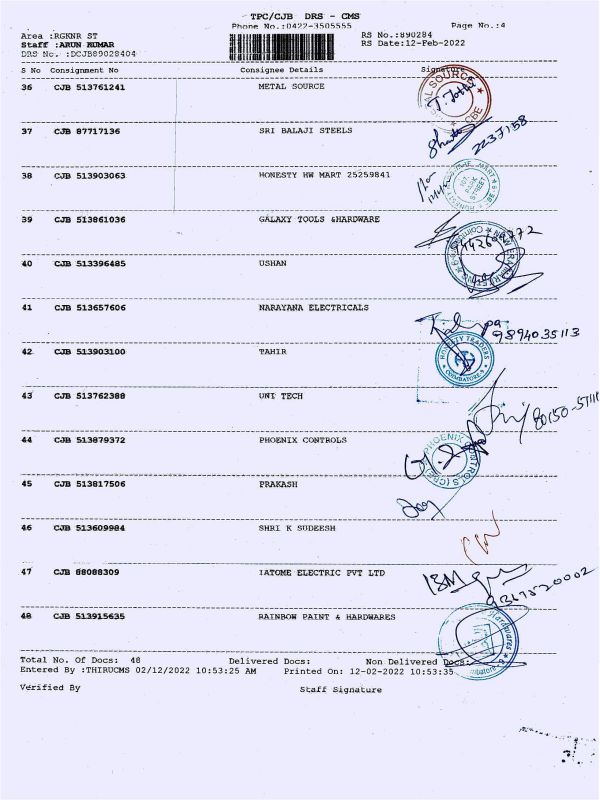 TPC/CJB DRS - CMS
Phone No.:0422-3505555
Page No.:4
Area :RGKNR ST
RS No.:890284
Staff :ARUN KUMAR
RS Date:12-Feb-2022
DRS No. :DCJB89028404
S No Consignment No Consignee Details Signature
36 CJB 513761241 METAL SOURCE
37 CJB 87717136 SRI BALAJI STEELS
38 CJB 513903063 HONESTY HW MART 25259841
39 CJB 513861036 GALAXY TOOLS &HARDWARE
40 CJB 513396485 USHAN
41 CJB 513657606 NARAYANA ELECTRICALS
9894035113
42 CJB 513903100 TAHIR
HONESTY TRADERS
COIMBATORE
43 CJB 513762388 UNI TECH
44 CJB 513879372 PHOENIX CONTROLS
PHOENIX CONTROLS (CBE)
45 CJB 513817506 PRAKASH
46 CJB 513609984 SHRI K SUDEESH
47 CJB 88088309 IATOME ELECTRIC PVT LTD
48 CJB 513915635 RAINBOW PAINT & HARDWARES
Total No. Of Docs: 48 Delivered Docs: Non Delivered Docs:
Entered By :THIRUCMS 02/12/2022 10:53:25 AM Printed On: 12-02-2022 10:53:35
Verified By Staff Signature